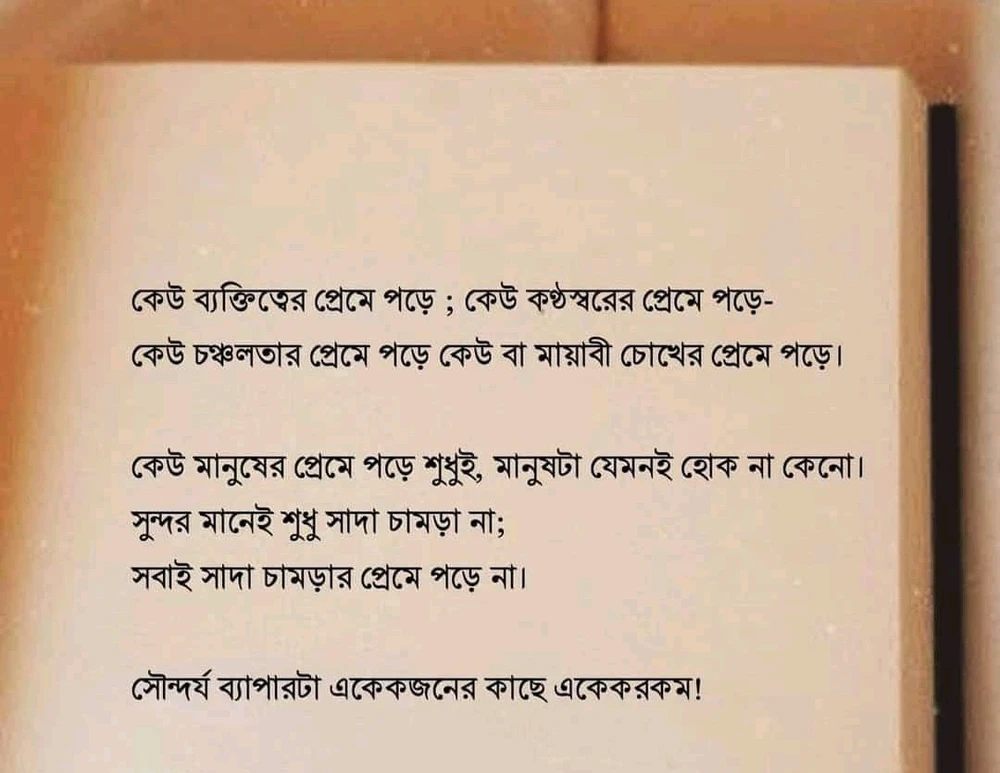 কেউ ব্যক্তিত্বের প্রেমে পড়ে ; কেউ কণ্ঠস্বরের প্রেমে পড়ে-
কেউ চঞ্চলতার প্রেমে পড়ে কেউ বা মায়াবী চোখের প্রেমে পড়ে।
কেউ মানুষের প্রেমে পড়ে শুধুই, মানুষটা যেমনই হোক না কেনো।
সুন্দর মানেই শুধু সাদা চামড়া না;
সবাই সাদা চামড়ার প্রেমে পড়ে না।
সৌন্দর্য ব্যাপারটা একেকজনের কাছে একেকরকম!